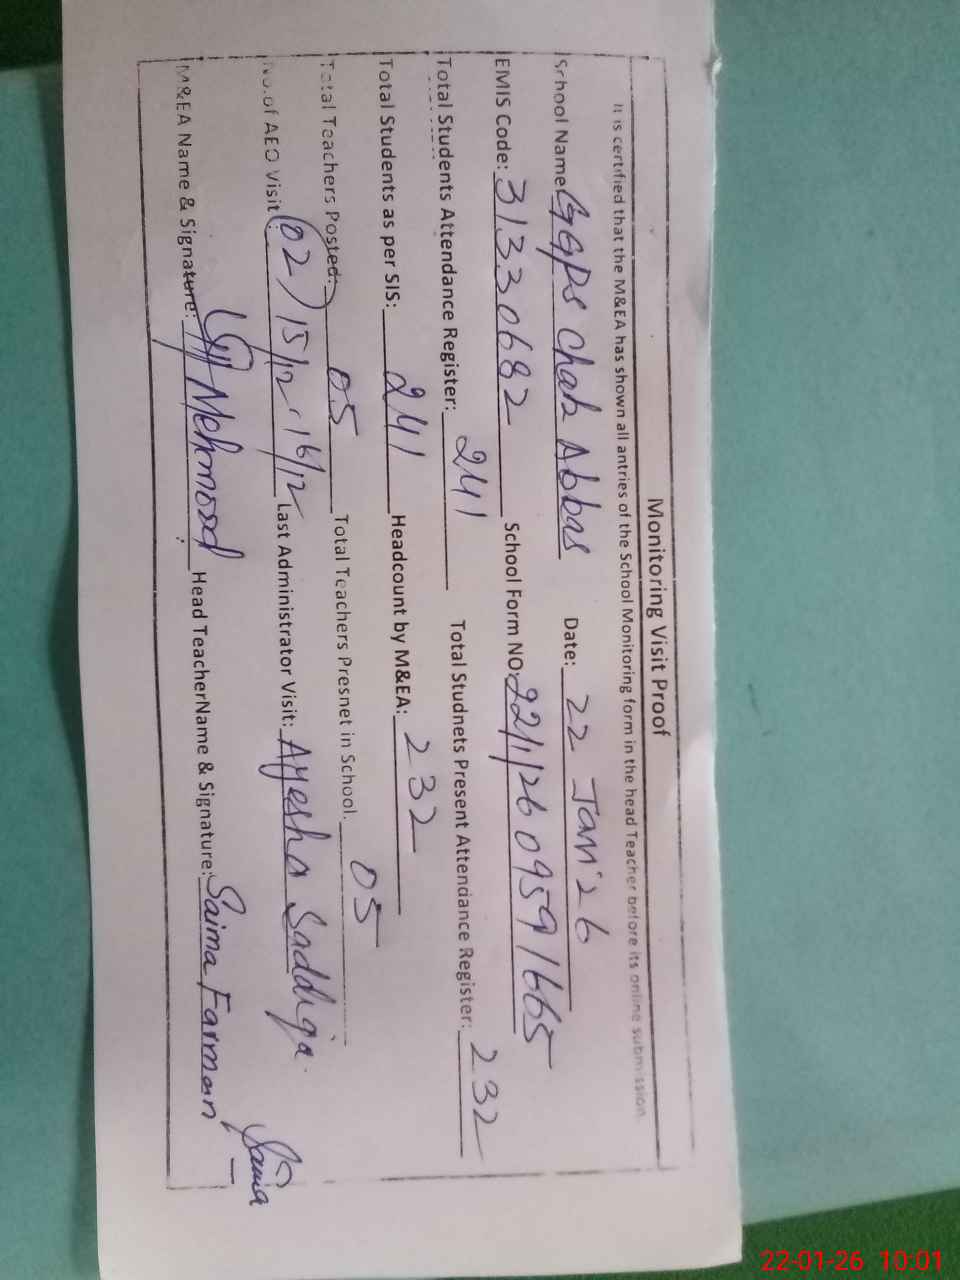 Monitoring Visit Proof
It is certified that the M&EA has shown all antries of the School Monitoring form in the head Teacher before its online submission.
School Name GGPS Chak Abbas Date: 22 Jan'26
EMIS Code: 31330682 School Form NO: 22/1/26 09591665
Total Students Attendance Register: 241 Total Studnets Present Attendance Register: 232
Total Students as per SIS: 241 Headcount by M&EA: 232
Total Teachers Posted: 05 Total Teachers Presnet in School. 05
No. of AEO Visit (02) 15/12 . 16/12 Last Administrator Visit: Ayesha Saddiqa.
M&EA Name & Signature: Mehmood Head TeacherName & Signature: Saima Farman
Saima
22-01-26 10:01